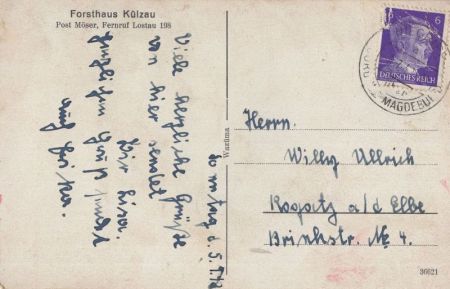 Forsthaus Külzau
Post Möser, Fernruf Lostau 198
Viele herzliche Grüße
von hier sendet
Herzlichen Gruß sendet
auch
Wasthma
6
DEUTSCHES REICH
MAGDEBURG
Herrn.
Willy Ullrich
Rogätz a/d Elbe
Brinkstr. № 4.
36621